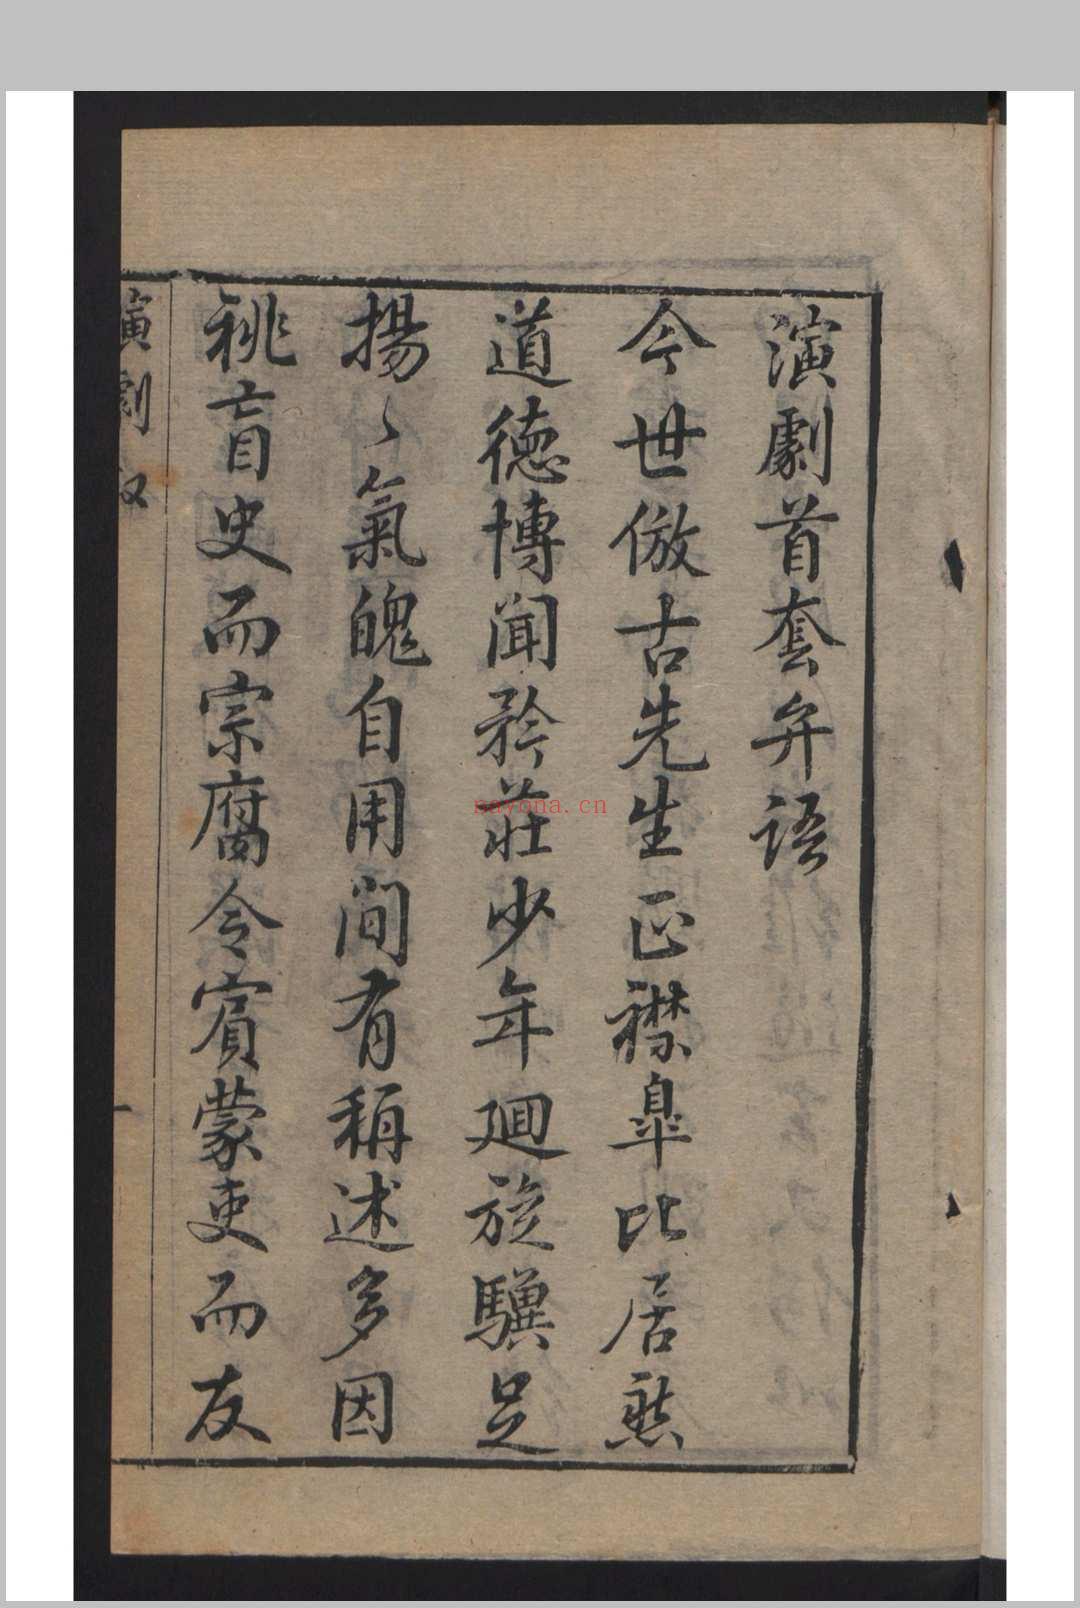 演劇首套弁語
今世倣古先生正襟皐比居然
道德博聞矜莊少年迴旋驥足
揚〻氣魄自用間有稱述多因
祧盲史而宗腐令賓蒙吏而友
演劇
nayona.cn